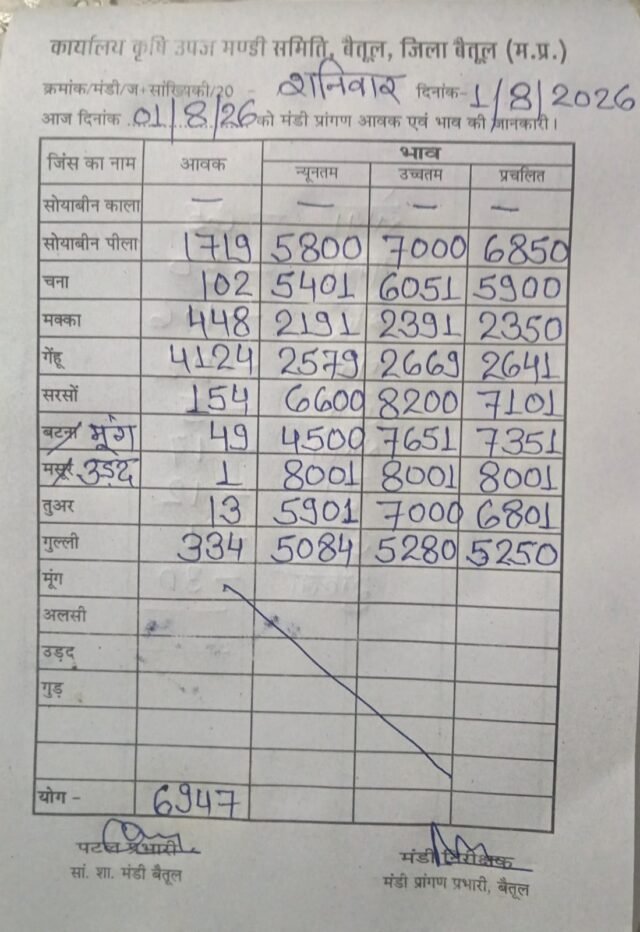 कार्यालय कृषि उपज मण्डी समिति, बैतूल, जिला बैतूल (म.प्र.)
क्रमांक/मंडी/ज+सांख्यिकी/20 - शनिवार दिनांक-1/8/2026
आज दिनांक 01/8/26 को मंडी प्रांगण आवक एवं भाव की जानकारी।
जिंस का नाम आवक भाव
न्यूनतम उच्चतम प्रचलित
सोयाबीन काला — — — —
सोयाबीन पीला 1719 5800 7000 6850
चना 102 5401 6051 5900
मक्का 448 2191 2391 2350
गेंहू 4124 2579 2669 2641
सरसों 154 6600 8200 7101
बटना मूंग 49 4500 7651 7351
मसूर उड़द 1 8001 8001 8001
तुअर 13 5901 7000 6801
गुल्ली 334 5084 5280 5250
मूंग
अलसी
उड़द
गुड़
योग - 6947
पटल प्रभारी मंडी निरीक्षक
सां. शा. मंडी बैतूल मंडी प्रांगण प्रभारी, बैतूल